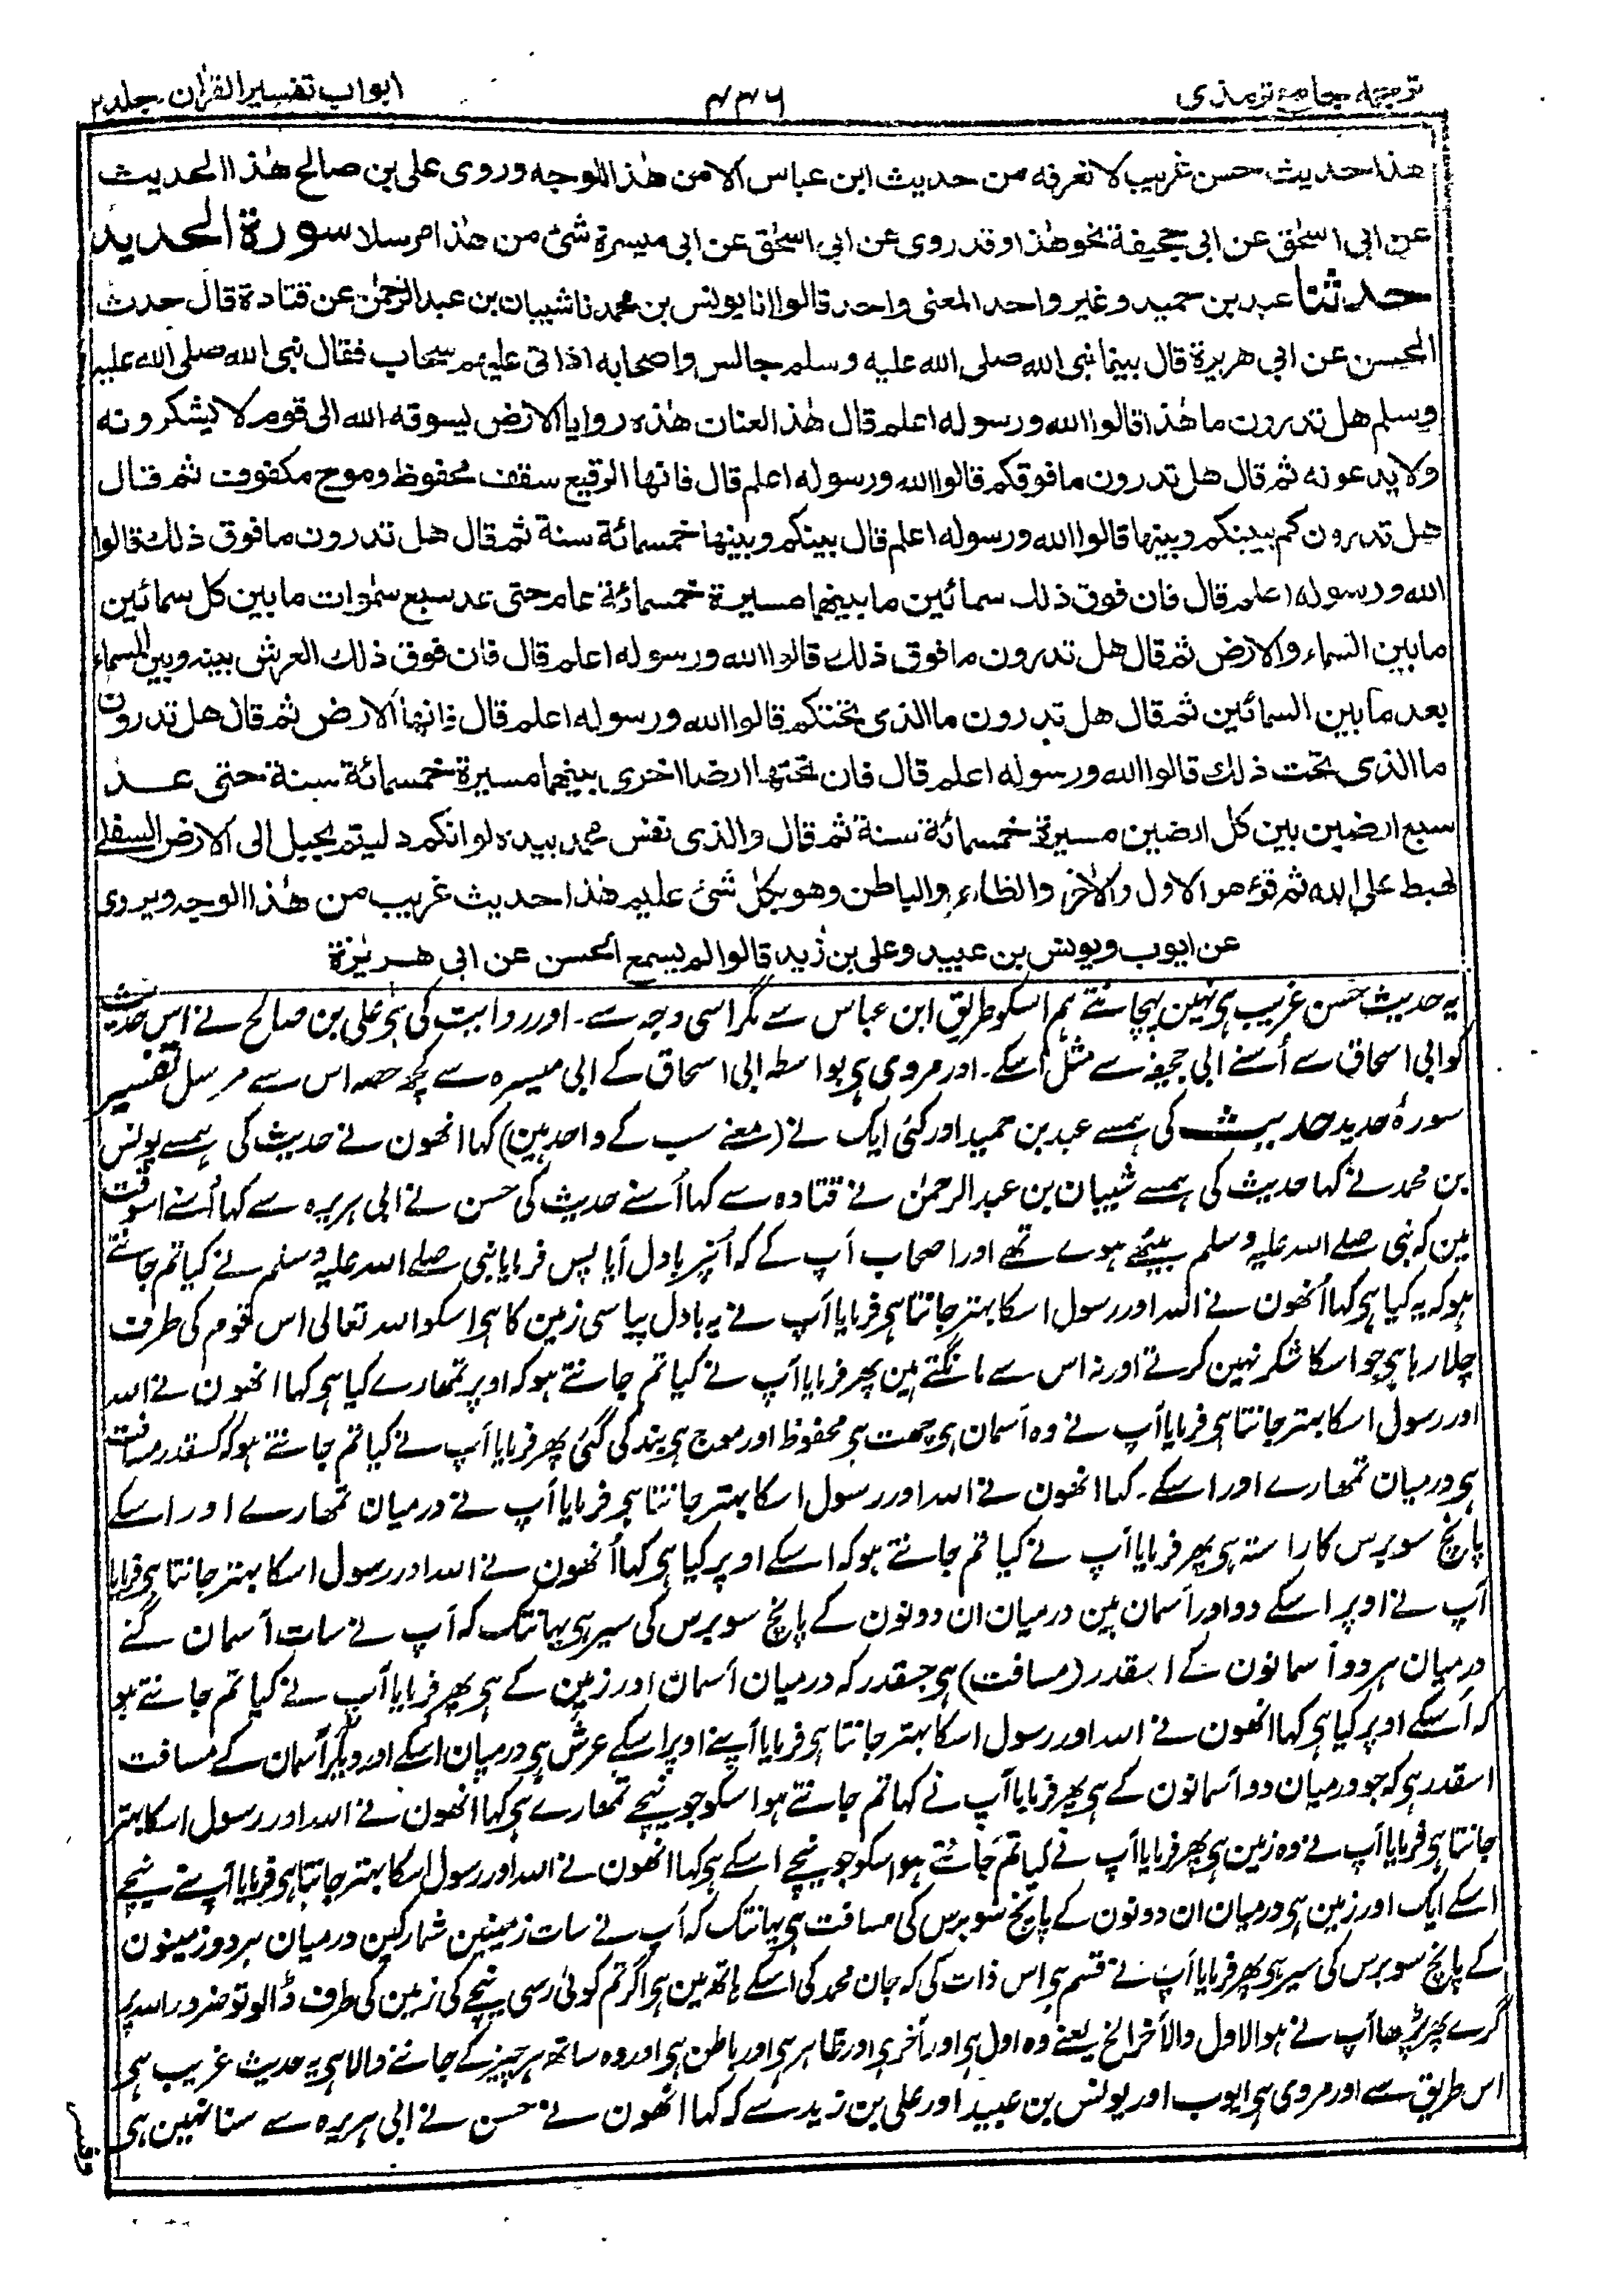 ترجمه جامع ترمذی
۴۳۶
ابواب تفسیر القرآن جلد ۲
هذا حديث حسن غريب لا نعرفه من حديث ابن عباس الا من هذا الوجه وروى على بن صالح هذا الحديث
عن ابى اسحٰق عن ابى جحيفة نحو هذا وقد روى عن ابى اسحٰق عن ابى ميسرة شئ من هذا مرسلا سورة الحديد
حدثنا عبد بن حميد وغير واحد المعنى واحد قالوا انا يونس بن محمد نا شيبان بن عبد الرحمٰن عن قتادة قال حدث
الحسن عن ابى هريرة قال بينما نبى الله صلى الله عليه وسلم جالس واصحابه اذ اتى عليهم سحاب فقال نبى الله صلى الله عليه
وسلم هل تدرون ما هذا قالوا الله ورسوله اعلم قال هذا العنان هذه روايا الارض يسوقه الله الى قوم لا يشكرونه
ولا يدعونه ثم قال هل تدرون ما فوقكم قالوا الله ورسوله اعلم قال فانها الرقيع سقف محفوظ وموج مكفوف ثم قال
هل تدرون كم بينكم وبينها قالوا الله ورسوله اعلم قال بينكم وبينها خمسمائة سنة ثم قال هل تدرون ما فوق ذلك قالوا
الله ورسوله اعلم قال فان فوق ذلك سمائين ما بينهما مسيرة خمسمائة عام حتى عد سبع سمٰوات ما بين كل سمائين
ما بين السماء والارض ثم قال هل تدرون ما فوق ذلك قالوا الله ورسوله اعلم قال فان فوق ذلك العرش بينه وبين السماء
بعد ما بين السمائين ثم قال هل تدرون ما الذى تحتكم قالوا الله ورسوله اعلم قال فانها الارض ثم قال هل تدرون
ما الذى تحت ذلك قالوا الله ورسوله اعلم قال فان تحتها ارضا اخرى بينهما مسيرة خمسمائة سنة حتى عد
سبع ارضين بين كل ارضين مسيرة خمسمائة سنة ثم قال والذى نفس محمد بيده لو انكم دليتم بحبل الى الارض السفلى
لهبط على الله ثم قرء هو الاول والاخر والظاهر والباطن وهو بكل شئ عليم هذا حديث غريب من هذا الوجه ويروى
عن ايوب ويونس بن عبيد وعلى بن زيد قالوا لم يسمع الحسن عن ابى هريرة
یہ حدیث حسن غریب ہی نہین پہچانتے ہم اسکو طریق ابن عباس سے مگر اسی وجہ سے۔ اور روایت کی ہی علی بن صالح نے اس حدیث
کو ابی اسحاق سے اُسنے ابی جحیفہ سے مثل اسکے۔ اور مروی ہی بواسطہ ابی اسحاق کے ابی میسرہ سے کچھ حصہ اس سے مرسل تفسیر
سورۂ حدید حدیث کی ہمسے عبد بن حمید اور کئی ایک نے (معنے سب کے واحد ہین) کہا انھون نے حدیث کی ہمسے یونس
بن محمد نے کہا حدیث کی ہمسے شیبان بن عبد الرحمٰن نے قتادہ سے کہا اُسنے حدیث کی حسن نے ابی ہریرہ سے کہا اُسنے اسوقت
مین کہ نبی صلے اللہ علیہ وسلم بیٹھے ہوے تھے اور اصحاب آپ کے کہ اُنپر بادل آیا پس فرمایا نبی صلے اللہ علیہ وسلم نے کیا تم جانتے
ہو کہ یہ کیا ہی کہا اُنھون نے اللہ اور رسول اسکا بہتر جانتا ہی فرمایا آپ نے یہ بادل پیاسی زمین کا ہی اسکو اللہ تعالی اس قوم کی طرف
چلا رہا ہی جو اسکا شکر نہین کرتے اور نہ اس سے مانگتے ہین پھر فرمایا آپ نے کیا تم جانتے ہو کہ اوپر تمھارے کیا ہی کہا انھون نے اللہ
اور رسول اسکا بہتر جانتا ہی فرمایا آپ نے وہ آسمان ہی چھت ہی محفوظ اور موج ہی بند کی گئی پھر فرمایا آپ نے کیا تم جانتے ہو کہ کسقدر مسافت
ہی درمیان تمھارے اور اسکے۔ کہا انھون نے اللہ اور رسول اسکا بہتر جانتا ہی فرمایا آپ نے درمیان تمھارے اور اسکے
پانچ سو برس کا راستہ ہی پھر فرمایا آپ نے کیا تم جانتے ہو کہ اسکے اوپر کیا ہی کہا اُنھون نے اللہ اور رسول اسکا بہتر جانتا ہی فرمایا
آپ نے اوپر اسکے دو اور آسمان ہین درمیان ان دونون کے پانچ سو برس کی سیر ہی یہانتک کہ آپ نے سات آسمان گنے
درمیان ہر دو آسمانون کے اسقدر (مسافت) ہی جسقدر کہ درمیان آسمان اور زمین کے ہی پھر فرمایا آپ نے کیا تم جانتے ہو
کہ اُسکے اوپر کیا ہی کہا انھون نے اللہ اور رسول اسکا بہتر جانتا ہی فرمایا آپنے اوپر اسکے عرش ہی درمیان اسکے اور دیگر آسمان کے مسافت
اسقدر ہی کہ جو درمیان دو آسمانون کے ہی پھر فرمایا آپ نے کہا تم جانتے ہو اسکو جو نیچے تمھارے ہی کہا انھون نے اللہ اور رسول اسکا بہتر
جانتا ہی فرمایا آپ نے وہ زمین ہی پھر فرمایا آپ نے کیا تم جانتے ہو اسکو جو نیچے اسکے ہی کہا انھون نے اللہ اور رسول اسکا بہتر جانتا ہی فرمایا آپ نے نیچے
اسکے ایک اور زمین ہی درمیان ان دونون کے پانچ سو برس کی مسافت ہی یہانتک کہ آپ نے سات زمینین شمار کین درمیان ہر دو زمینون
کے پانچ سو برس کی سیر ہی پھر فرمایا آپ نے قسم ہی اس ذات کی کہ جان محمد کی اسکے ہاتھ مین ہی اگر تم کوئی رسی نیچے کی زمین کی طرف ڈالو تو ضرور اللہ پر
گرے پھر پڑھا آپ نے ہو الاول والآخر الخ یعنے وہ اول ہی اور آخر ہی اور ظاہر ہی اور باطن ہی اور وہ ساتھ ہر چیز کے جاننے والا ہی یہ حدیث غریب ہی
اس طریق سے اور مروی ہی ایوب اور یونس بن عبید اور علی بن زید سے کہ کہا انھون نے حسن نے ابی ہریرہ سے سنا نہین ہی